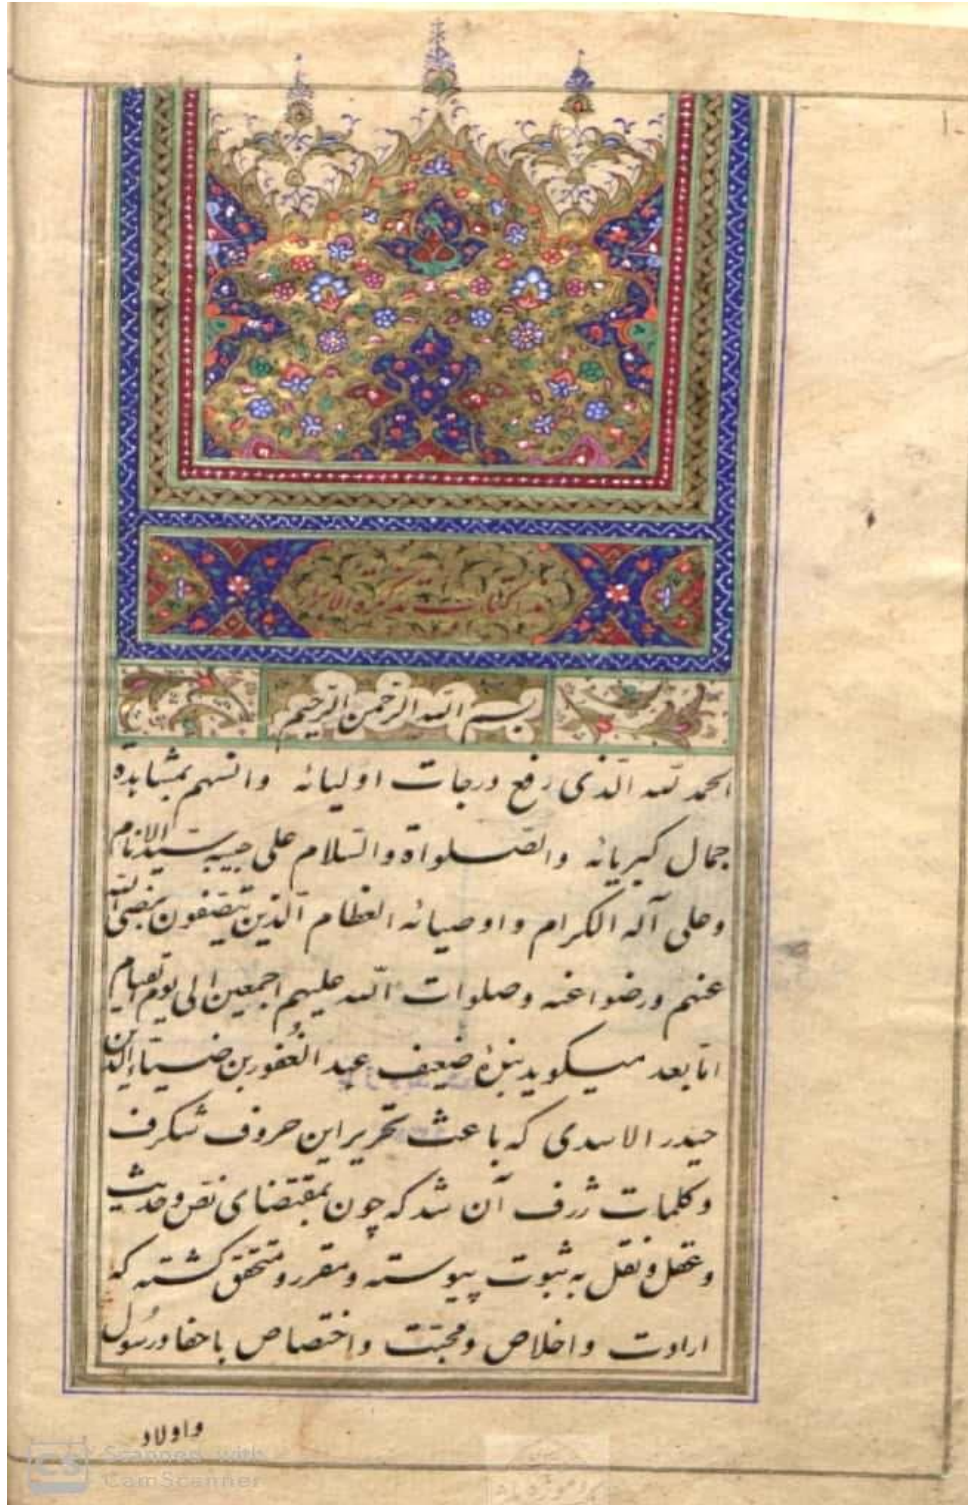 هذا كتاب تذكرة الابرار
بسم الله الرحمن الرحيم
الحمد لله الّذی رفع درجات اولیائه وانسهم بمشاهدة
جمال کبریائه والصّلواة والسّلام علی حبیبه سیّد الانام
وعلی آله الکرام واوصیائه العظام الّذین یتّصفون برضی اللّه
عنهم ورضوا عنه وصلوات اللّه علیهم اجمعین الی یوم القیام
امّا بعد میکوید بندۀ ضعیف عبد الغُفور بن ضیاء الدین
حیدر الاسدی که باعث تحریر این حروف شکرف
وکلمات ژرف آن شد که چون بمقتضای نصّ وحدیث
وعقل ونقل به ثبوت پیوسته ومقرر ومتحقق کشته که
ارادت واخلاص ومحبّت واختصاص باحفاد رسُول
واولاد
Scanned with
CamScanner